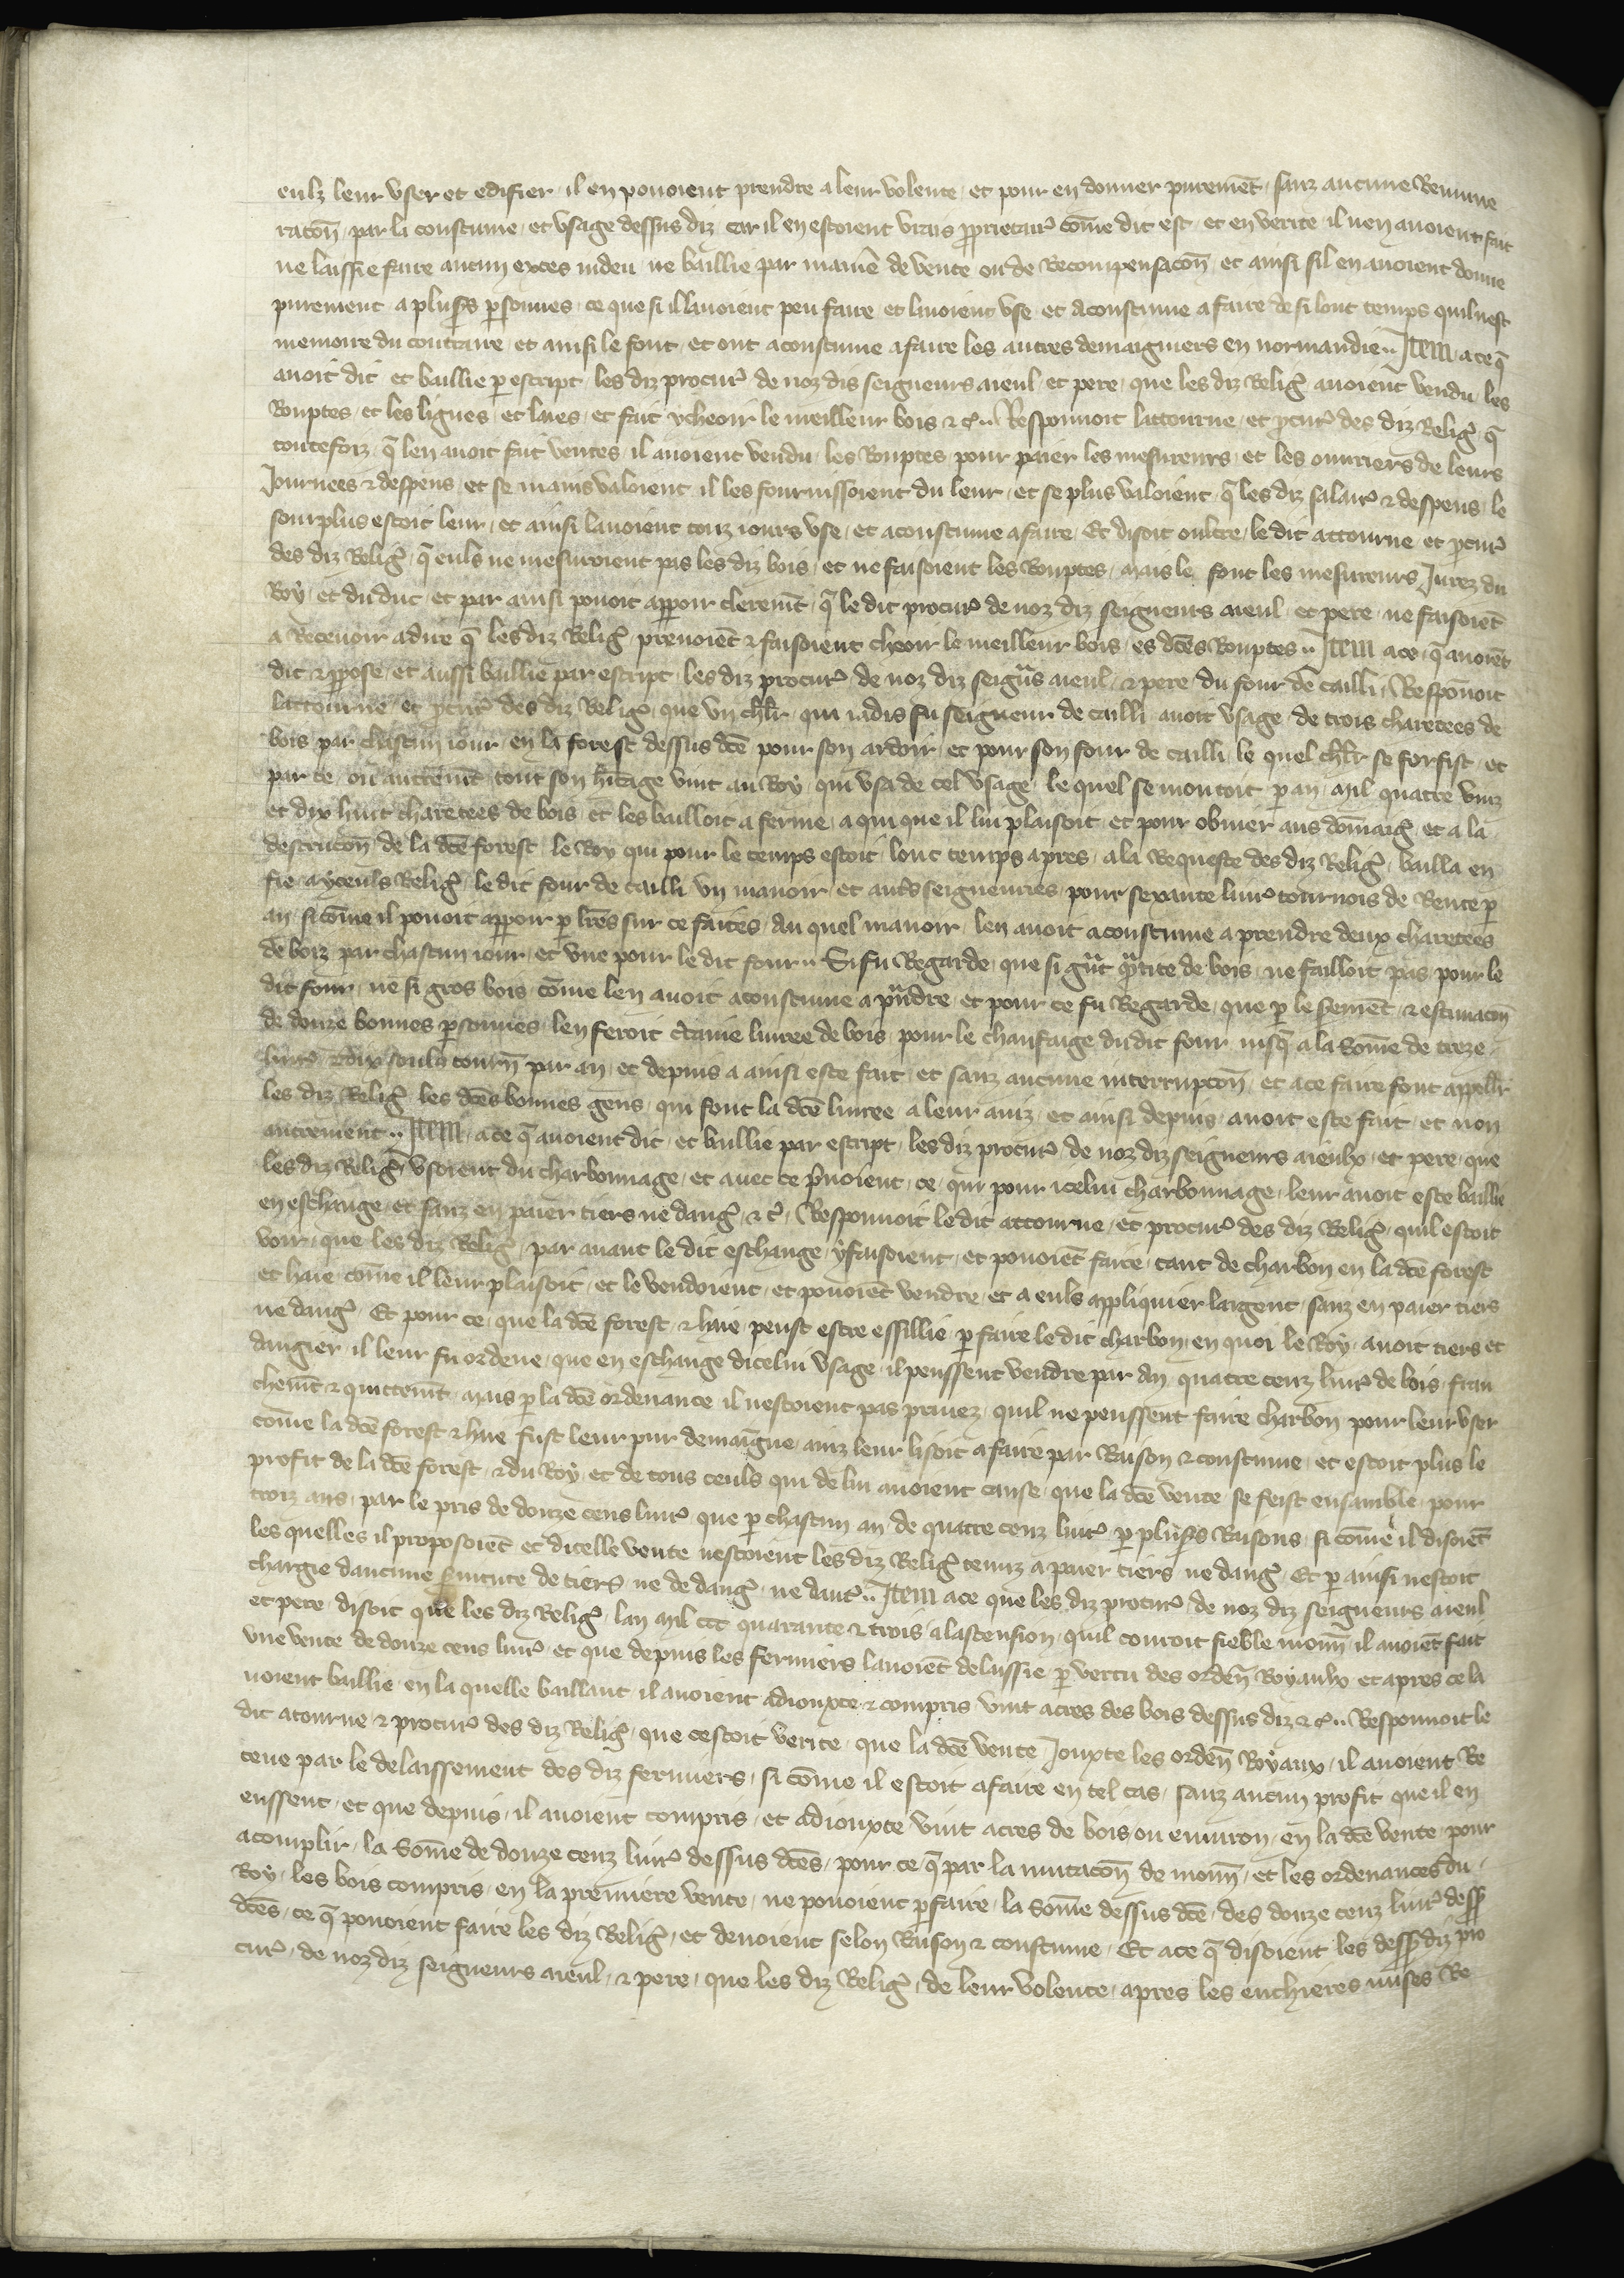 eulz leur user et edifier il en povoient prendre a leur volente et pour en donner puremẽt sanz aucune Remune
racoñ par la coustume et usage dessus diz car il en estoient vrais ꝓprietair᷒ cõme dit est et en verite il nen avoient fait
ne laissie faire aucun exces indeu ne baillie par maniẽ de vente ou de Recompensacoñ et ainsi sil en avoient donne
purement a plus̃s p̱sonnes ce que si il lavoient peu faire et lavoient use et acoustume a faire de si lonc temps quil nest
memoire du contraire et ainsi le font et ont acoustume a faire les autres demaigniers en normandie .. Item ace q̃
avoit dit et baillie p̱ escript les diz procur᷒ de noz dis seigneurs aieul et pere que les diz Relig᷒ avoient vendu les
Rouptes et les lignes et laies et fait ycheoir le meilleur bois ⁊ c᷒ .. Responnoit lattourne et ꝓcur᷒ des diz Relig᷒ q̃
toutefoiz q̃ len avoit fait ventes il avoient vendu les Rouptes pour paier les mesureurs et les ouvriers de leurs
Journees ⁊ despens et se mains valoient il les fournissoient du leur et se plus valoient q̃ les diz salair᷒ ⁊ despens le
sourplus estoit leur et ainsi lavoient touz iours use et acoustume a faire Et disoit oultre le dit attourne et ꝓcur᷒
des diz Relig᷒ q̃ euls ne mesuroient pas les diz bois et ne faisoient les Rouptes mais le font les mesureurs Jurez du
Roy et du duc et par ainsi povoit apparoir cleremẽt q̃ le dit procur᷒ de noz diz seigneurs aieul et pere ne faisoiẽt
a Recevoir a dire q̃ les diz Relig᷒ prenoiẽt ⁊ faisoient cheoir le meilleur bois es dc̃es Rouptes .. Item ace q̃ avoiẽt
dit ⁊ ꝓpose et aussi baillie par escript les diz procur᷒ de noz diz seigñrs aieul ⁊ pere du four de cailli Responnoit
lattourne et ꝓcur᷒ des diz Relig᷒ que un chlr̃ qui iadis fu seigneur de cailli avoit usage de trois charetees de
bois par chascun iour en la forest dessus dc̃e pour son ardoir et pour son four de cailli le quel chlr̃ se forfist et
par ce ou autremẽt tout son hr̃itage vint au Roy qui usa de cel usage le quel se montoit p̱ an mil quatre vinz
et dix huit charetees de bois et les bailloit a ferme a qui que il lui plaisoit et pour obvier aus dõmaig᷒ et a la
destrucoñ de la dc̃e forest le Roy qui pour le temps estoit lonc temps apres a la Requeste des diz Relig᷒ bailla en
fie a yceuls Relig᷒ le dit four de cailli un manoir et autr̃s seigneuries pour sexante livr᷒ tournois de Rente p̱
an si cõme il povoit apparoir p̱ lr̃es sur ce faites du quel manoir len avoit acoustume a prendre deux charetees
de boiz par chascun iour et une pour le dit four .. Si fu Regarde que si grãt q̃ntite de bois ne failloit pas pour le
dit four ne si gros bois cõme len avoit acoustume a p̃ndre et pour ce fu Regarde que p̱ le s̃emẽt ⁊ estimacoñ
de douze bonnes p̱sonnes len feroit c̃taine livree de bois pour le chaufaige du dit four iusq̃ a la sõme de treze
livr᷒ ⁊ dix soulz tourñ par an et depuis a ainsi este fait et sanz aucune interrupcoñ et ace faire font appellr̃
les diz Relig᷒ les dc̃es bonnes gens qui font la dc̃e livree a leur aviz et ainsi depuis avoit este fait et non
autrement .. Item ace q̃ avoient dit et baillie par escript les diz procur᷒ de noz diz seigneurs aieulx et pere que
les diz Relig᷒ usoient du charbonnage et avec ce p̃noient ce qui pour icelui charbonnage leur avoit este baillie
en eschange et sanz en paier tiers ne dang᷒ ⁊ c᷒ Responnoit le dit attourne et procur᷒ des diz Relig᷒ quil estoit
voir que les diz Relig᷒ par avant le dit eschange y faisoient et povoiẽt faire tant de charbon en la dc̃e forest
et haie cõme il leur plaisoit et le vendoient et povoiẽt vendre et a euls appliquier largent sanz en paier tiers
ne dang᷒ Et pour ce que la dc̃e forest ⁊ haie peust estre essillie p̱ faire le dit charbon en quoi le Roy avoit tiers et
dangier il leur fu ordene que en eschange dicelui usage il peussent vendre par an quatre cenz livr᷒ de bois fran
chemẽt ⁊ quittemẽt mais p̱ la dc̃e ordenance il nestoient pas privez quil ne peussent faire charbon pour leur user
cõme la dc̃e forest ⁊ haie fust leur pur demaigne ainz leur lisoit a faire par Raison ⁊ coustume et estoit plus le
profit de la dc̃e forest ⁊ du Roy et de tous ceuls qui de lui avoient cause que la dc̃e vente se feist ensamble pour
troiz ans par le pris de douze cens livr᷒ que p̱ chascun an de quatre cenz livr᷒ p̱ plus̃s Raisons si cõme il disoiẽt
les quelles il proposoiẽt et dicelle vente nestoient les diz Relig᷒ tenuz a paier tiers ne dang᷒ Et p̱ ainsi nestoit
chargie daucune s̃vitute de tiers ne de dang᷒ ne daut᷒ .. Item ace que les diz procur᷒ de noz diz seigneurs aieul
et pere disoit que les diz Relig᷒ lan mil ccc quarante ⁊ trois a lascension quil couroit fieble monñ il avoiẽt fait
une vente de douze cens livr᷒ et que depuis les fermiers lavoiẽt delaissie p̱ vertu des ordeñ Royaulx et apres ce la
voient baillie en la quelle baillant il avoient adiouxte ⁊ compris vint acres des bois dessus diz ⁊ c᷒ .. Responnoit le
dit atourne ⁊ procur᷒ des diz Relig᷒ que cestoit verite que la dc̃e vente Jouxte les ordeñ Royaux il avoient Re
tenue par le delaissement des diz fermiers si cõme il estoit a faire en tel cas sanz aucun profit que il en
eussent et que depuis il avoient compris et adiouxte vint acres de bois ou environ en la dc̃e vente pour
acomplir la sõme de douze cenz livr᷒ dessus dc̃es pour ce q̃ par la mutacoñ de monñ et les ordenances du
Roy les bois compris en la premiere vente ne povoient p̱faire la sõme dessus dc̃e des douze cenz livr᷒ dess̃
dc̃es ce q̃ povoient faire les diz Relig᷒ et devoient selon Raison ⁊ coustume Et ace q̃ disoient les dess̃ diz pro
cur᷒ de noz diz seigneurs aieul ⁊ pere que les diz Relig᷒ de leur volente apres les enchieres mises Re